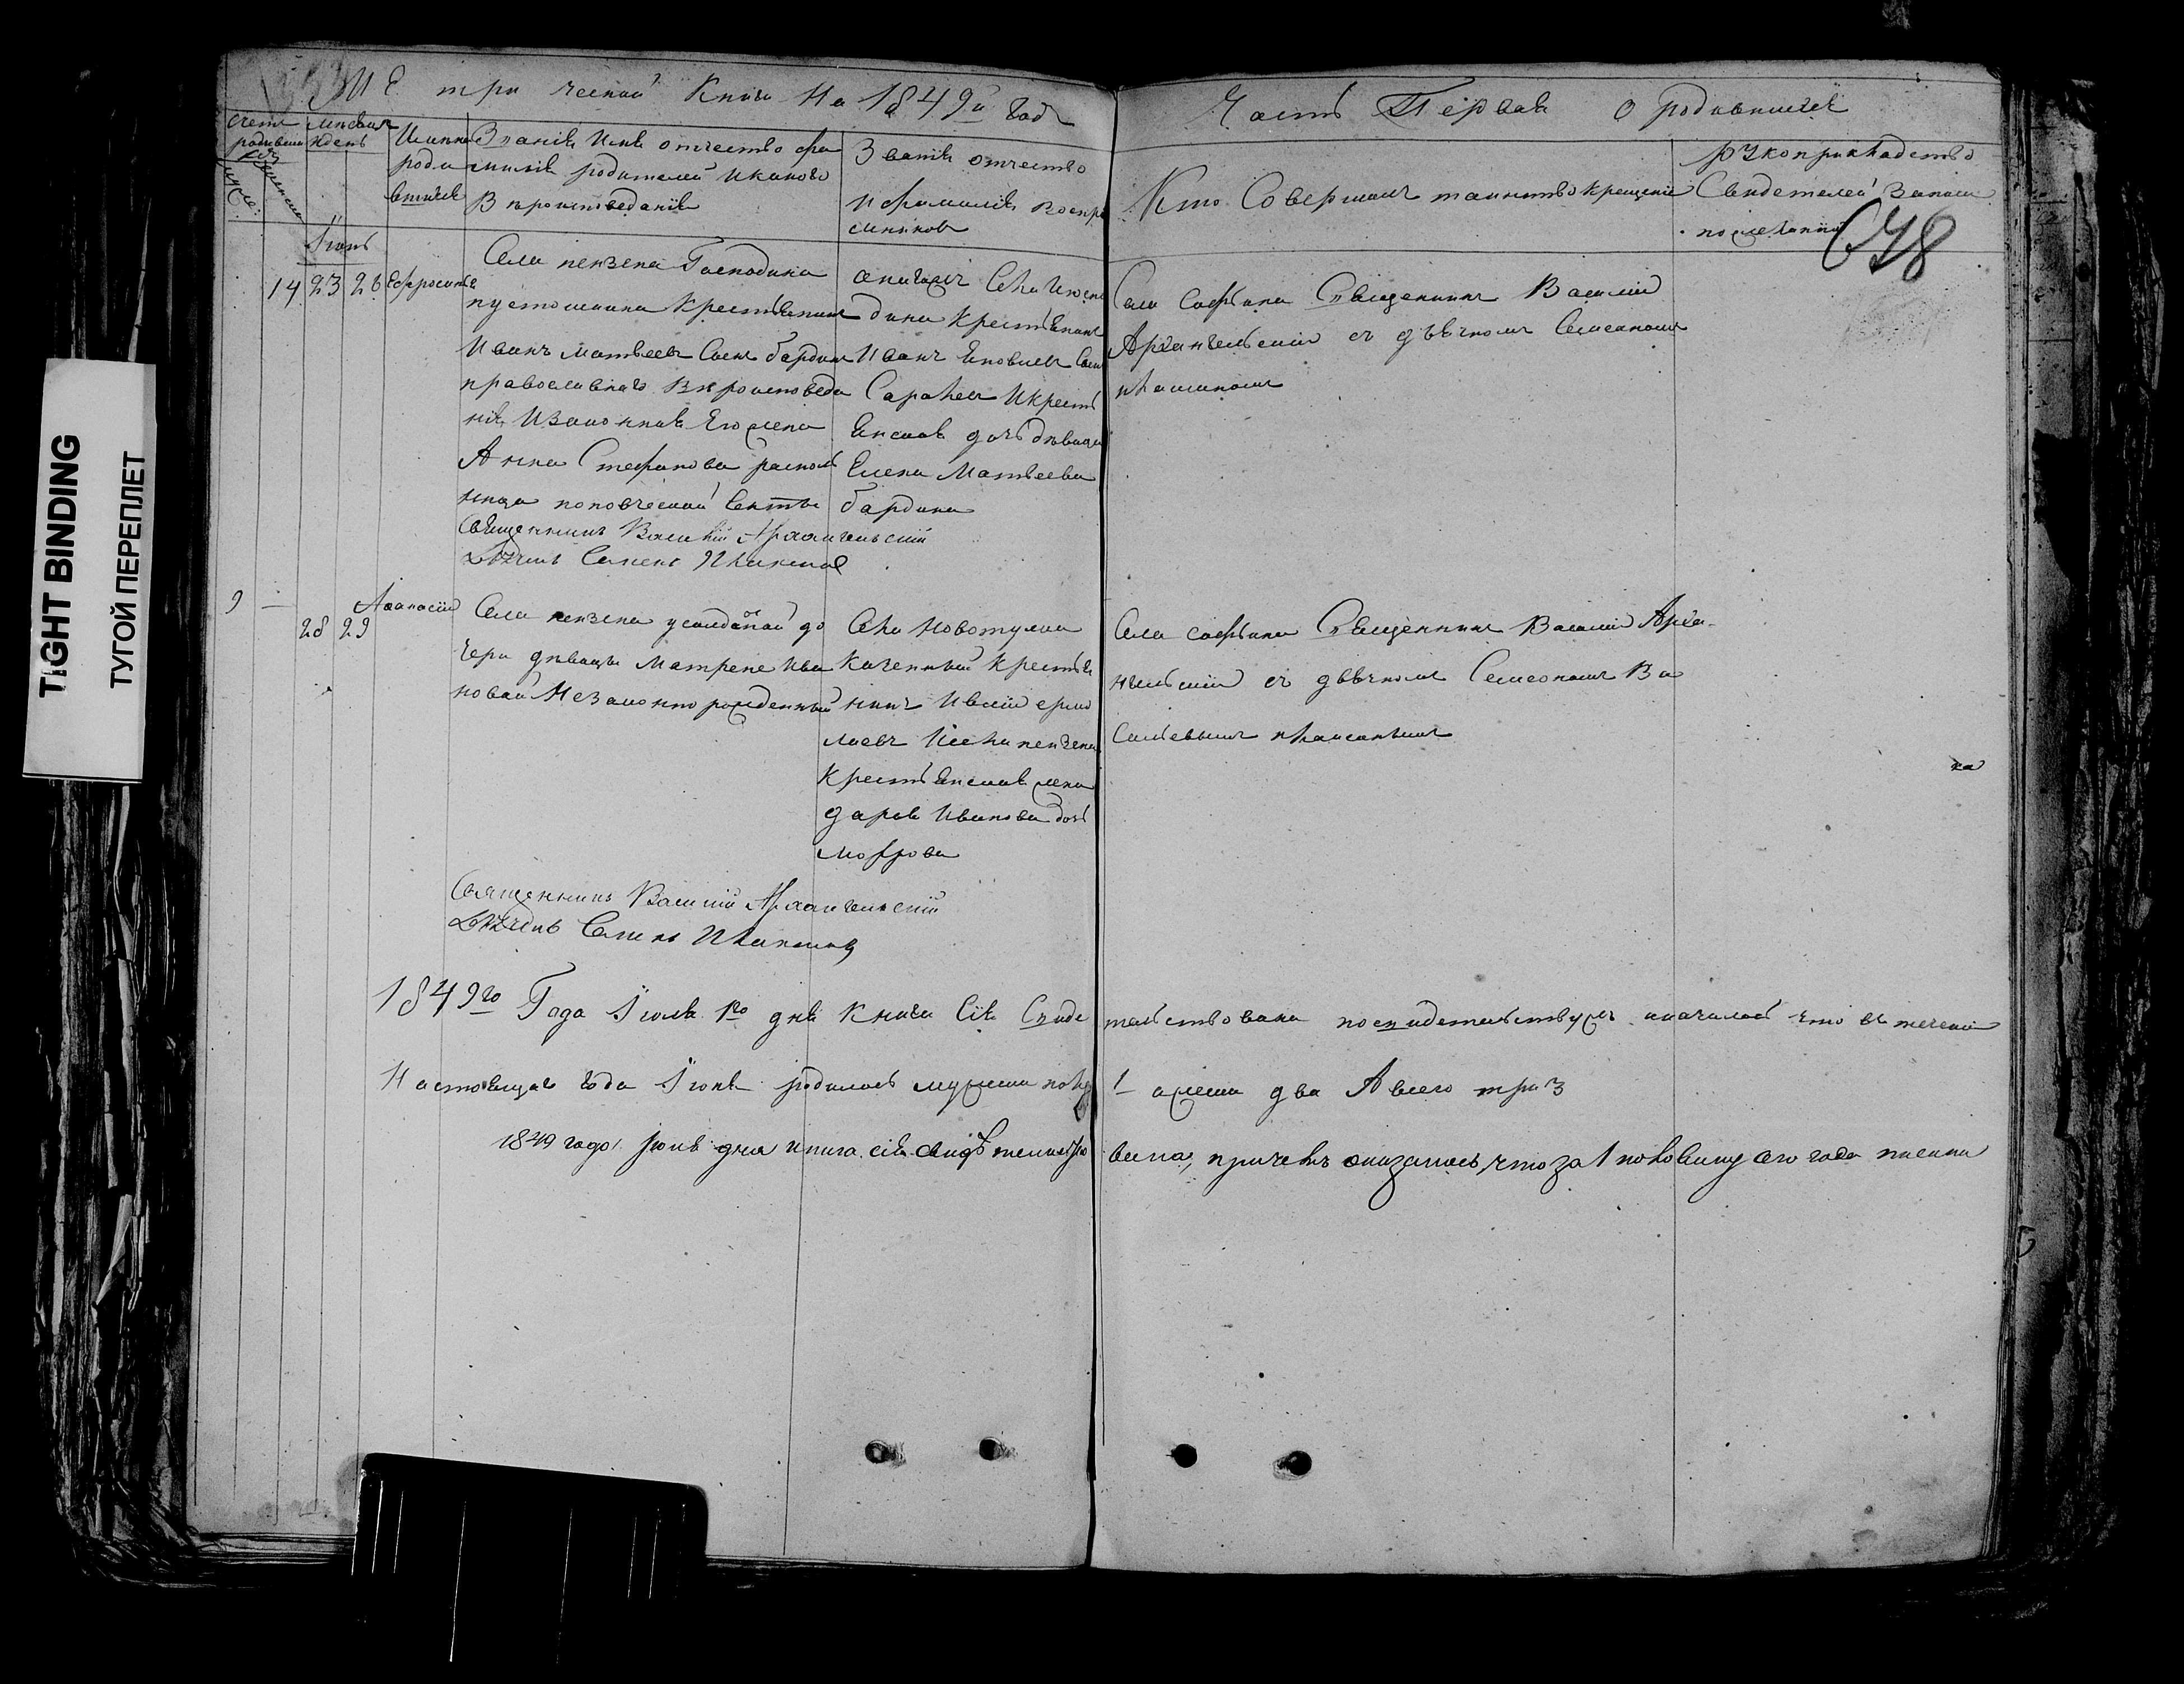 МЕтрической Книги На 1849й Годъ
Часть Первая о родившихся
счетъ родивши
мѣсяцъ и день
Имена роди вшихся
Званіе Имя отчество фа
милія родителей и каково
Вѣроисповеданія
Званіе отчество
и фамилія воспри
емников
Кто Совершалъ таинство крещенія
рукоприкладство
Свидетелей записи
по желанію
648
Іюнь
14 23 26 Ефросинья
Села пензена Господина
пустошкина крестьянинъ
Иванъ матвеевъ Сынъ бардинъ
православнаго Вѣроисповеда
нія И законная Его жена
Анна Стефанова расколь
ница поповческой Секты
Священникъ Василій Архангельскій
Дьячекъ Семенъ
оныхъ Села
дина крестьянинъ
Иванъ Яковлевъ Сынъ
и крестъ
янская дочь девица
Елена Матвеева
бардина
Села Софьина Священникъ Василій
Архангельскій съ дьячкомъ Семеономъ
9 —
28 29
Афанасій
Села пензена у солдатской до
чери девицы Матрены Ива
новой Незаконно рожденный
Села Новотулки
Казенный крестья
нинъ ермо
лаевъ И села пензена
крестьянская жена
дарья Иванова дочь
Села софьина Священникъ Василій Арха-
нгельскій съ дьячкомъ Семеономъ Ва
сильевымъ
ка
Священникъ Василій Архангельскій
Дьячекъ Семенъ
1849го Года Іюля 1го дня Книга Сія Свиде
тельствована по свидетельству же оказалось что въ теченіи
Настоящаго года Іюня родилось мужеска полу
1 а женска два А всего три 3
1849 года Іюля дня книга сія свидѣтельство
вана, причемъ оказалось, что за 1 половину сего года писана
TIGHT BINDING
ТУГОЙ ПЕРЕПЛЕТ